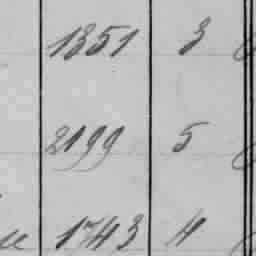 1851 3
2199 5
1743 4